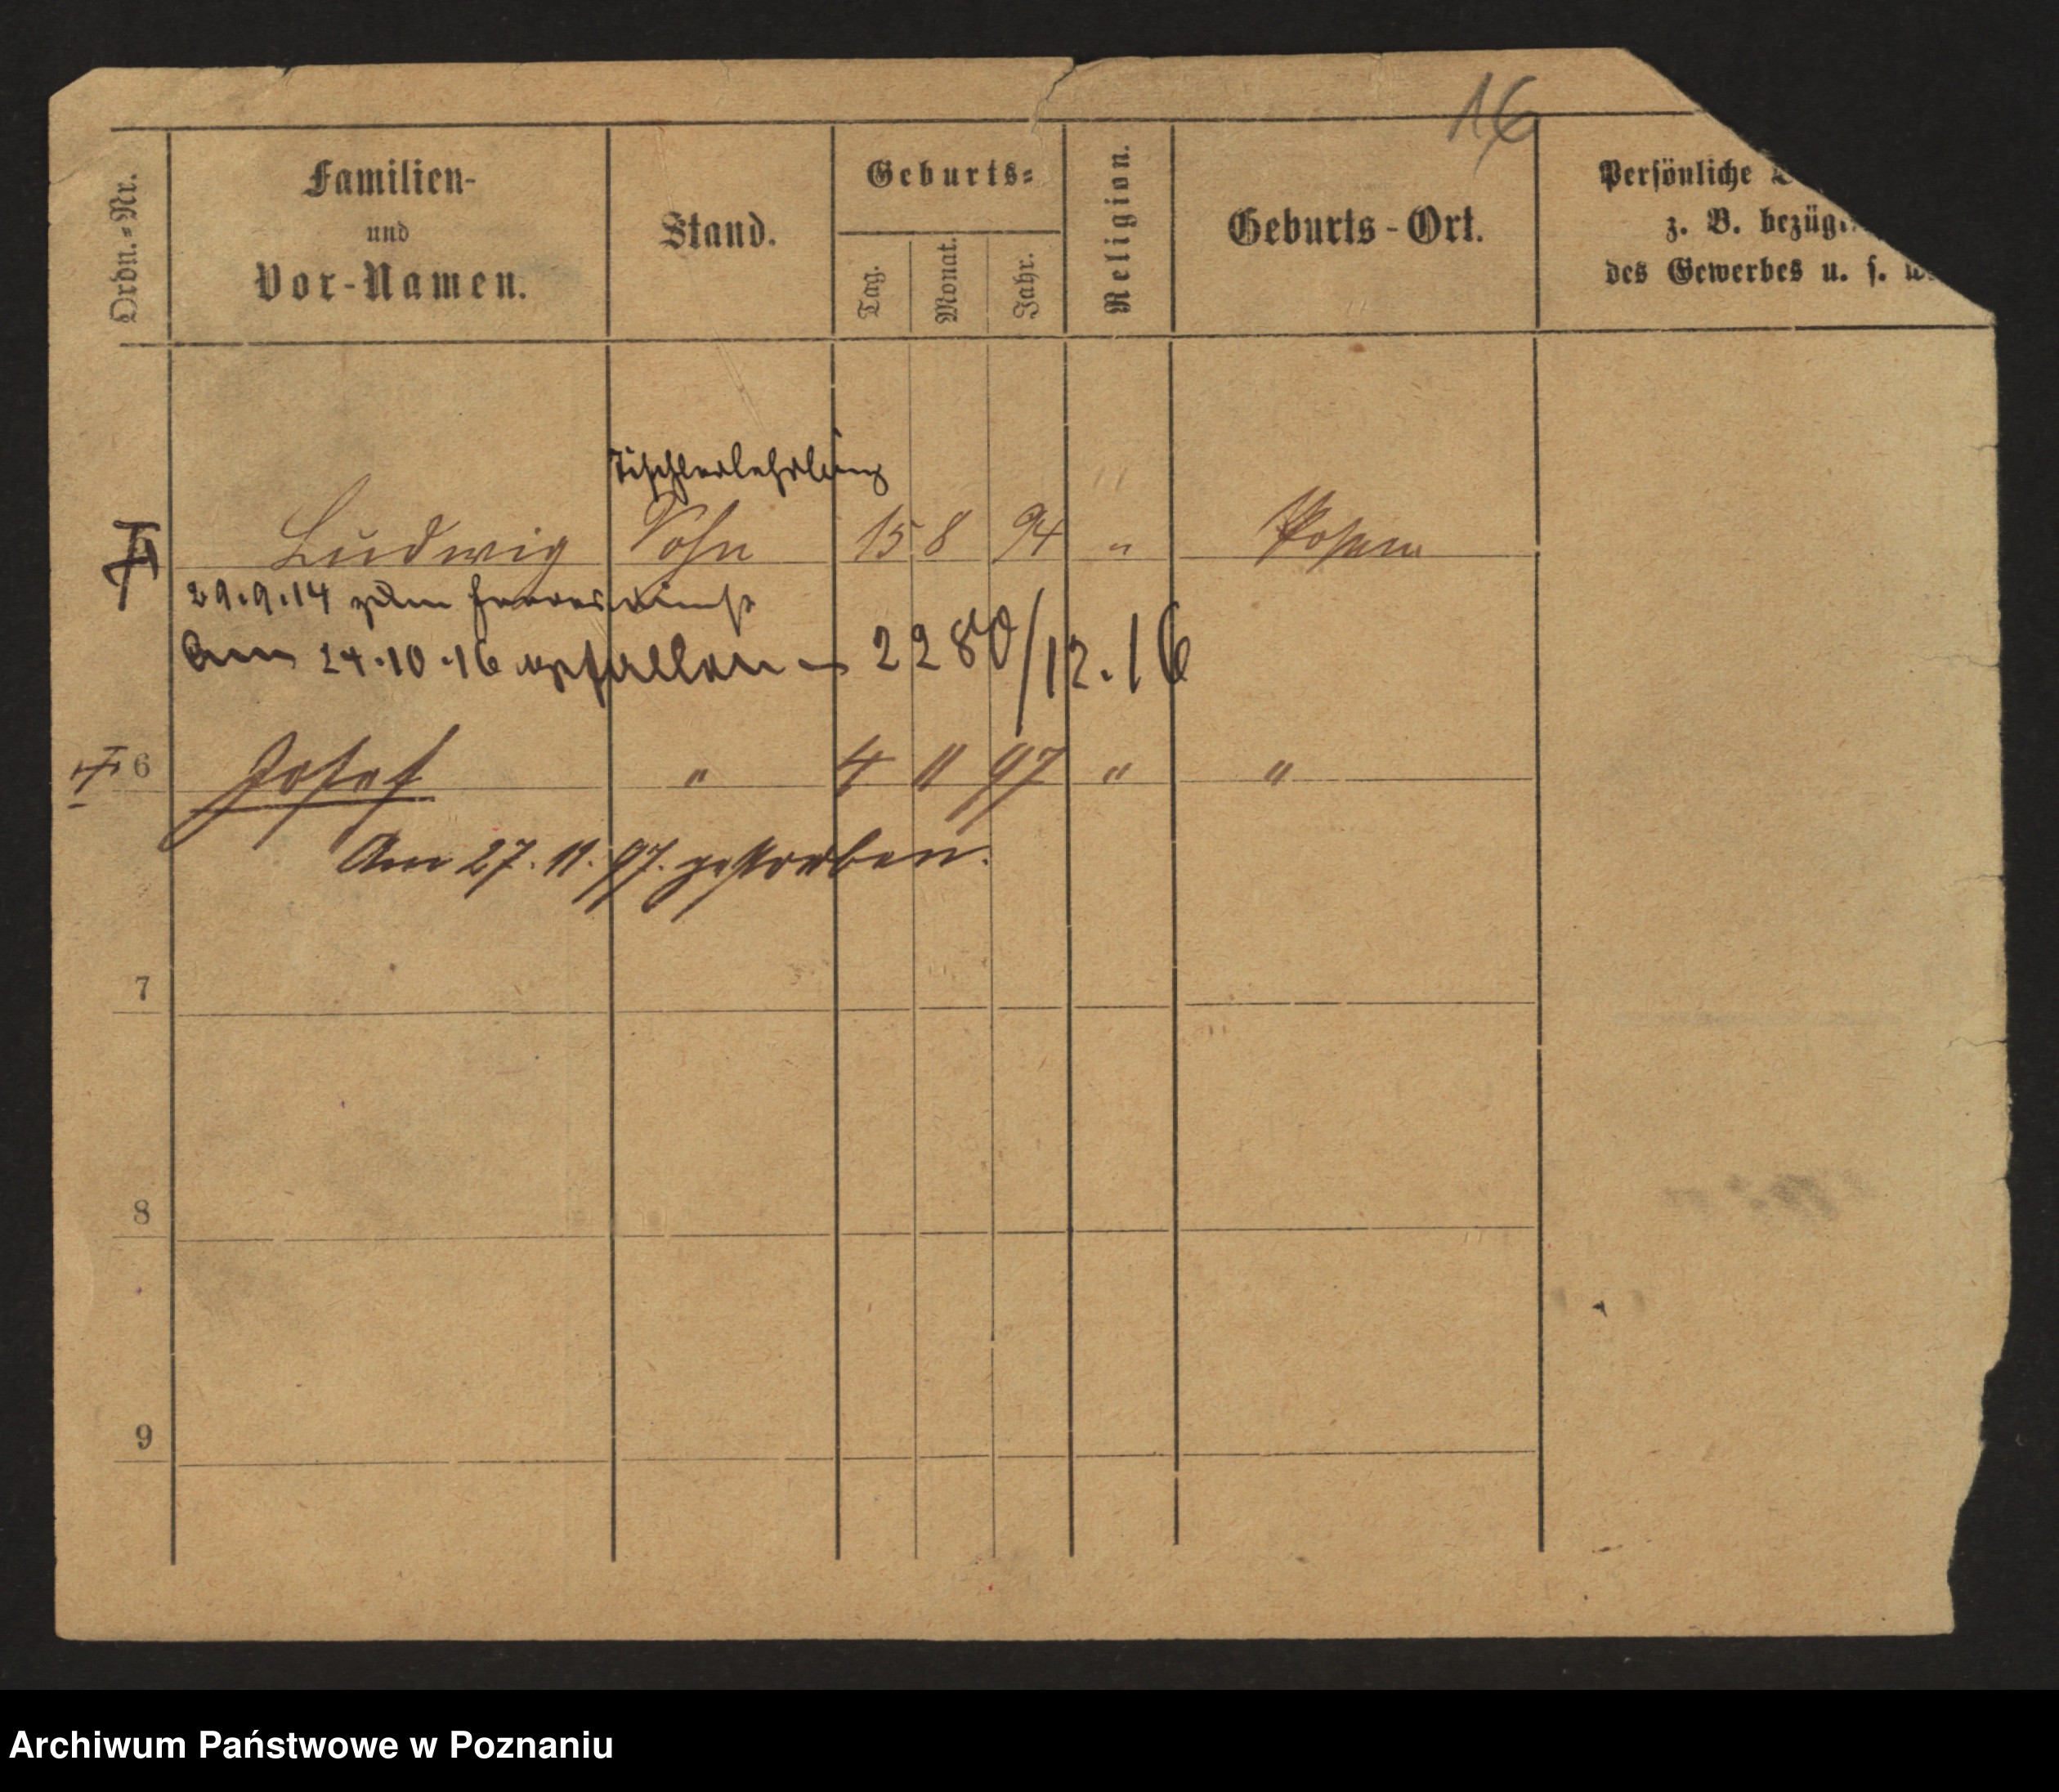 16
Ordn.-Nr.
Familien-
und
Vor-Namen.
Stand.
Geburts-
Tag.
Monat.
Jahr.
Religion.
Geburts-Ort.
Persönliche
z. B. bezügl.
des Gewerbes u. s. w.
Tischlerlehrling
Ludwig Sohn 15 8 94 " Posen
29.9.14 zum Heeresdienst
Am 24.10.16 gefallen - 2280/12.16
6 Josef " 4 11 97 " "
Am 27.11.97. gestorben.
7
8
9
Archiwum Państwowe w Poznaniu